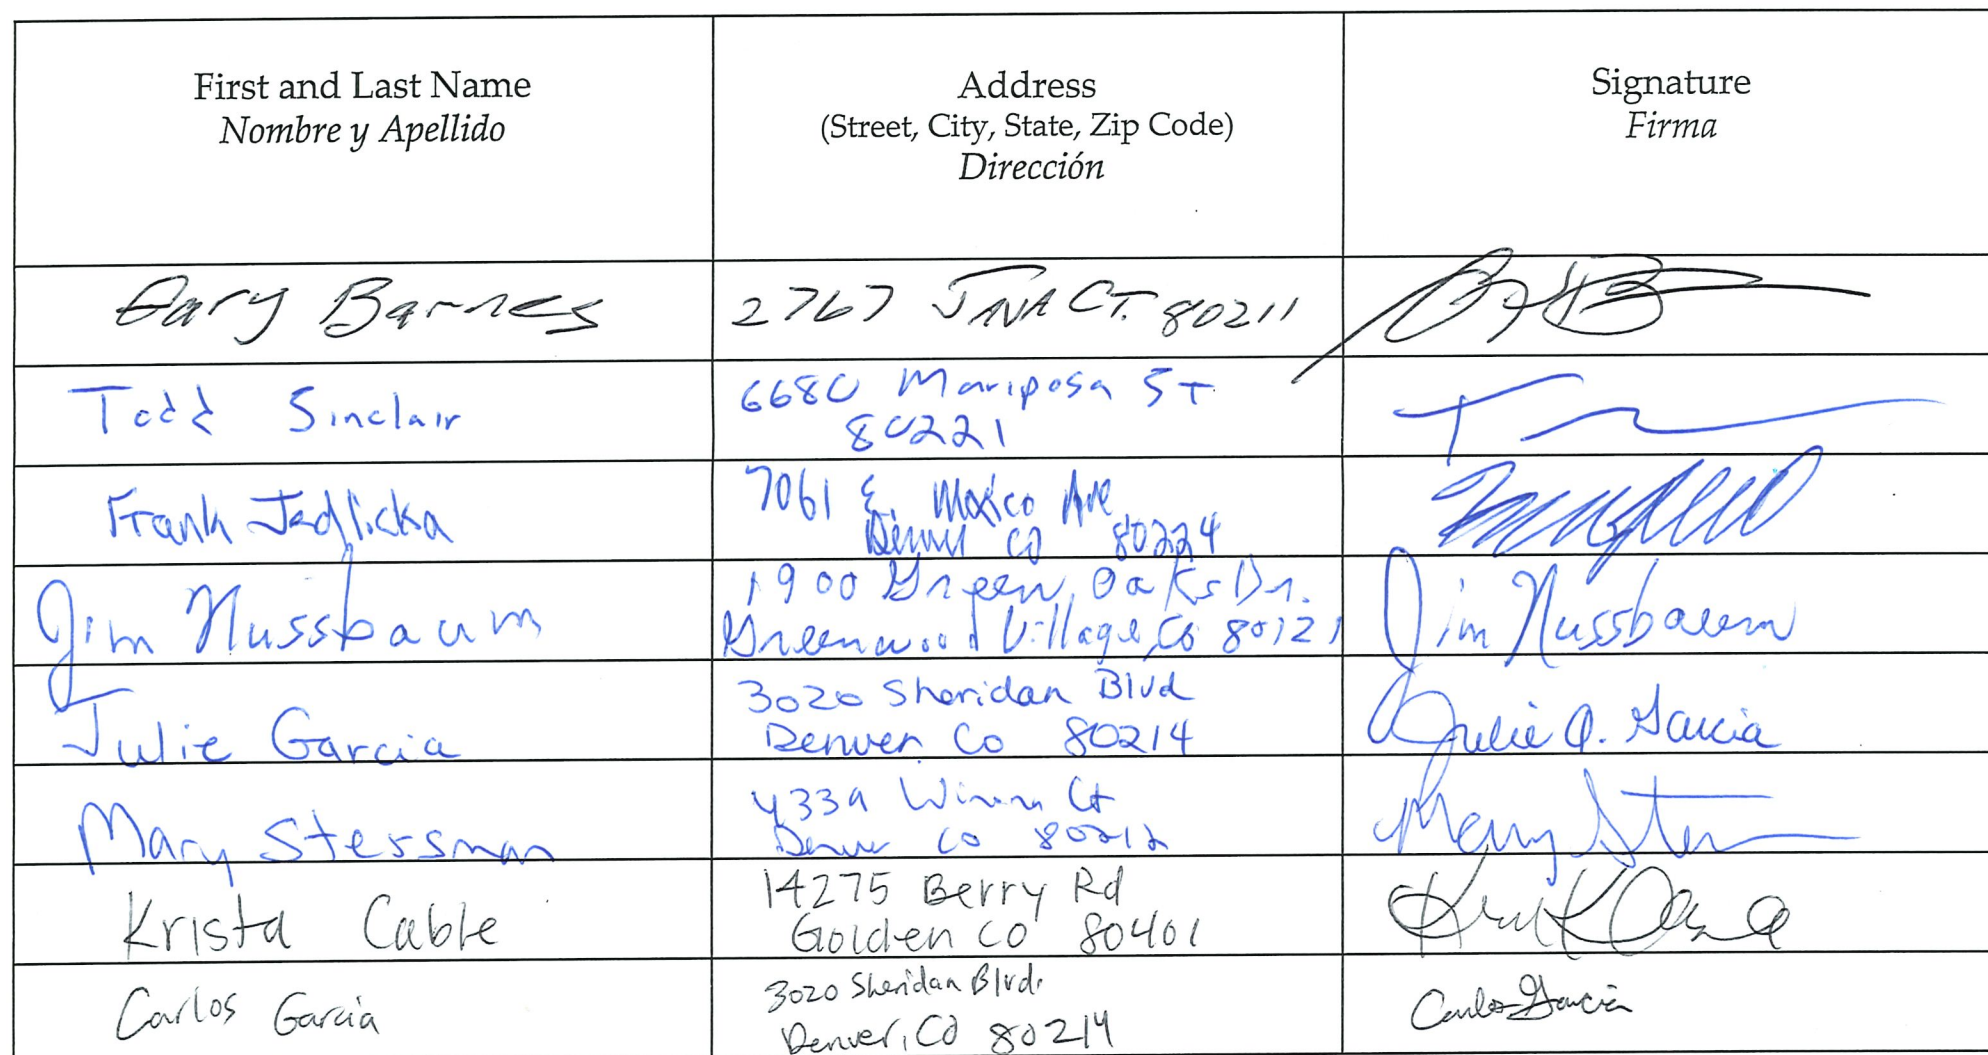 First and Last Name
Nombre y Apellido
Address
(Street, City, State, Zip Code)
Dirección
Signature
Firma
Gary Barnes
2767 CT. 80211
Todd Sinclair
6680 Mariposa ST
80221
Frank Jedlicka
7061 E. Mexico Ave
Denver CO 80224
Jim Nussbaum
1900 Green Oaks Dr.
Greenwood Village, Co 80121
Jim Nussbaum
Julie Garcia
3020 Sheridan Blvd
Denver Co 80214
Julie Q. Garcia
Mary Stessman
4339 Ct
Denver Co 80212
Mary
Krista Cable
14275 Berry Rd
Golden CO 80401
Carlos Garcia
3020 Sheridan Blvd.
Denver, CO 80214
Carlos Garcia